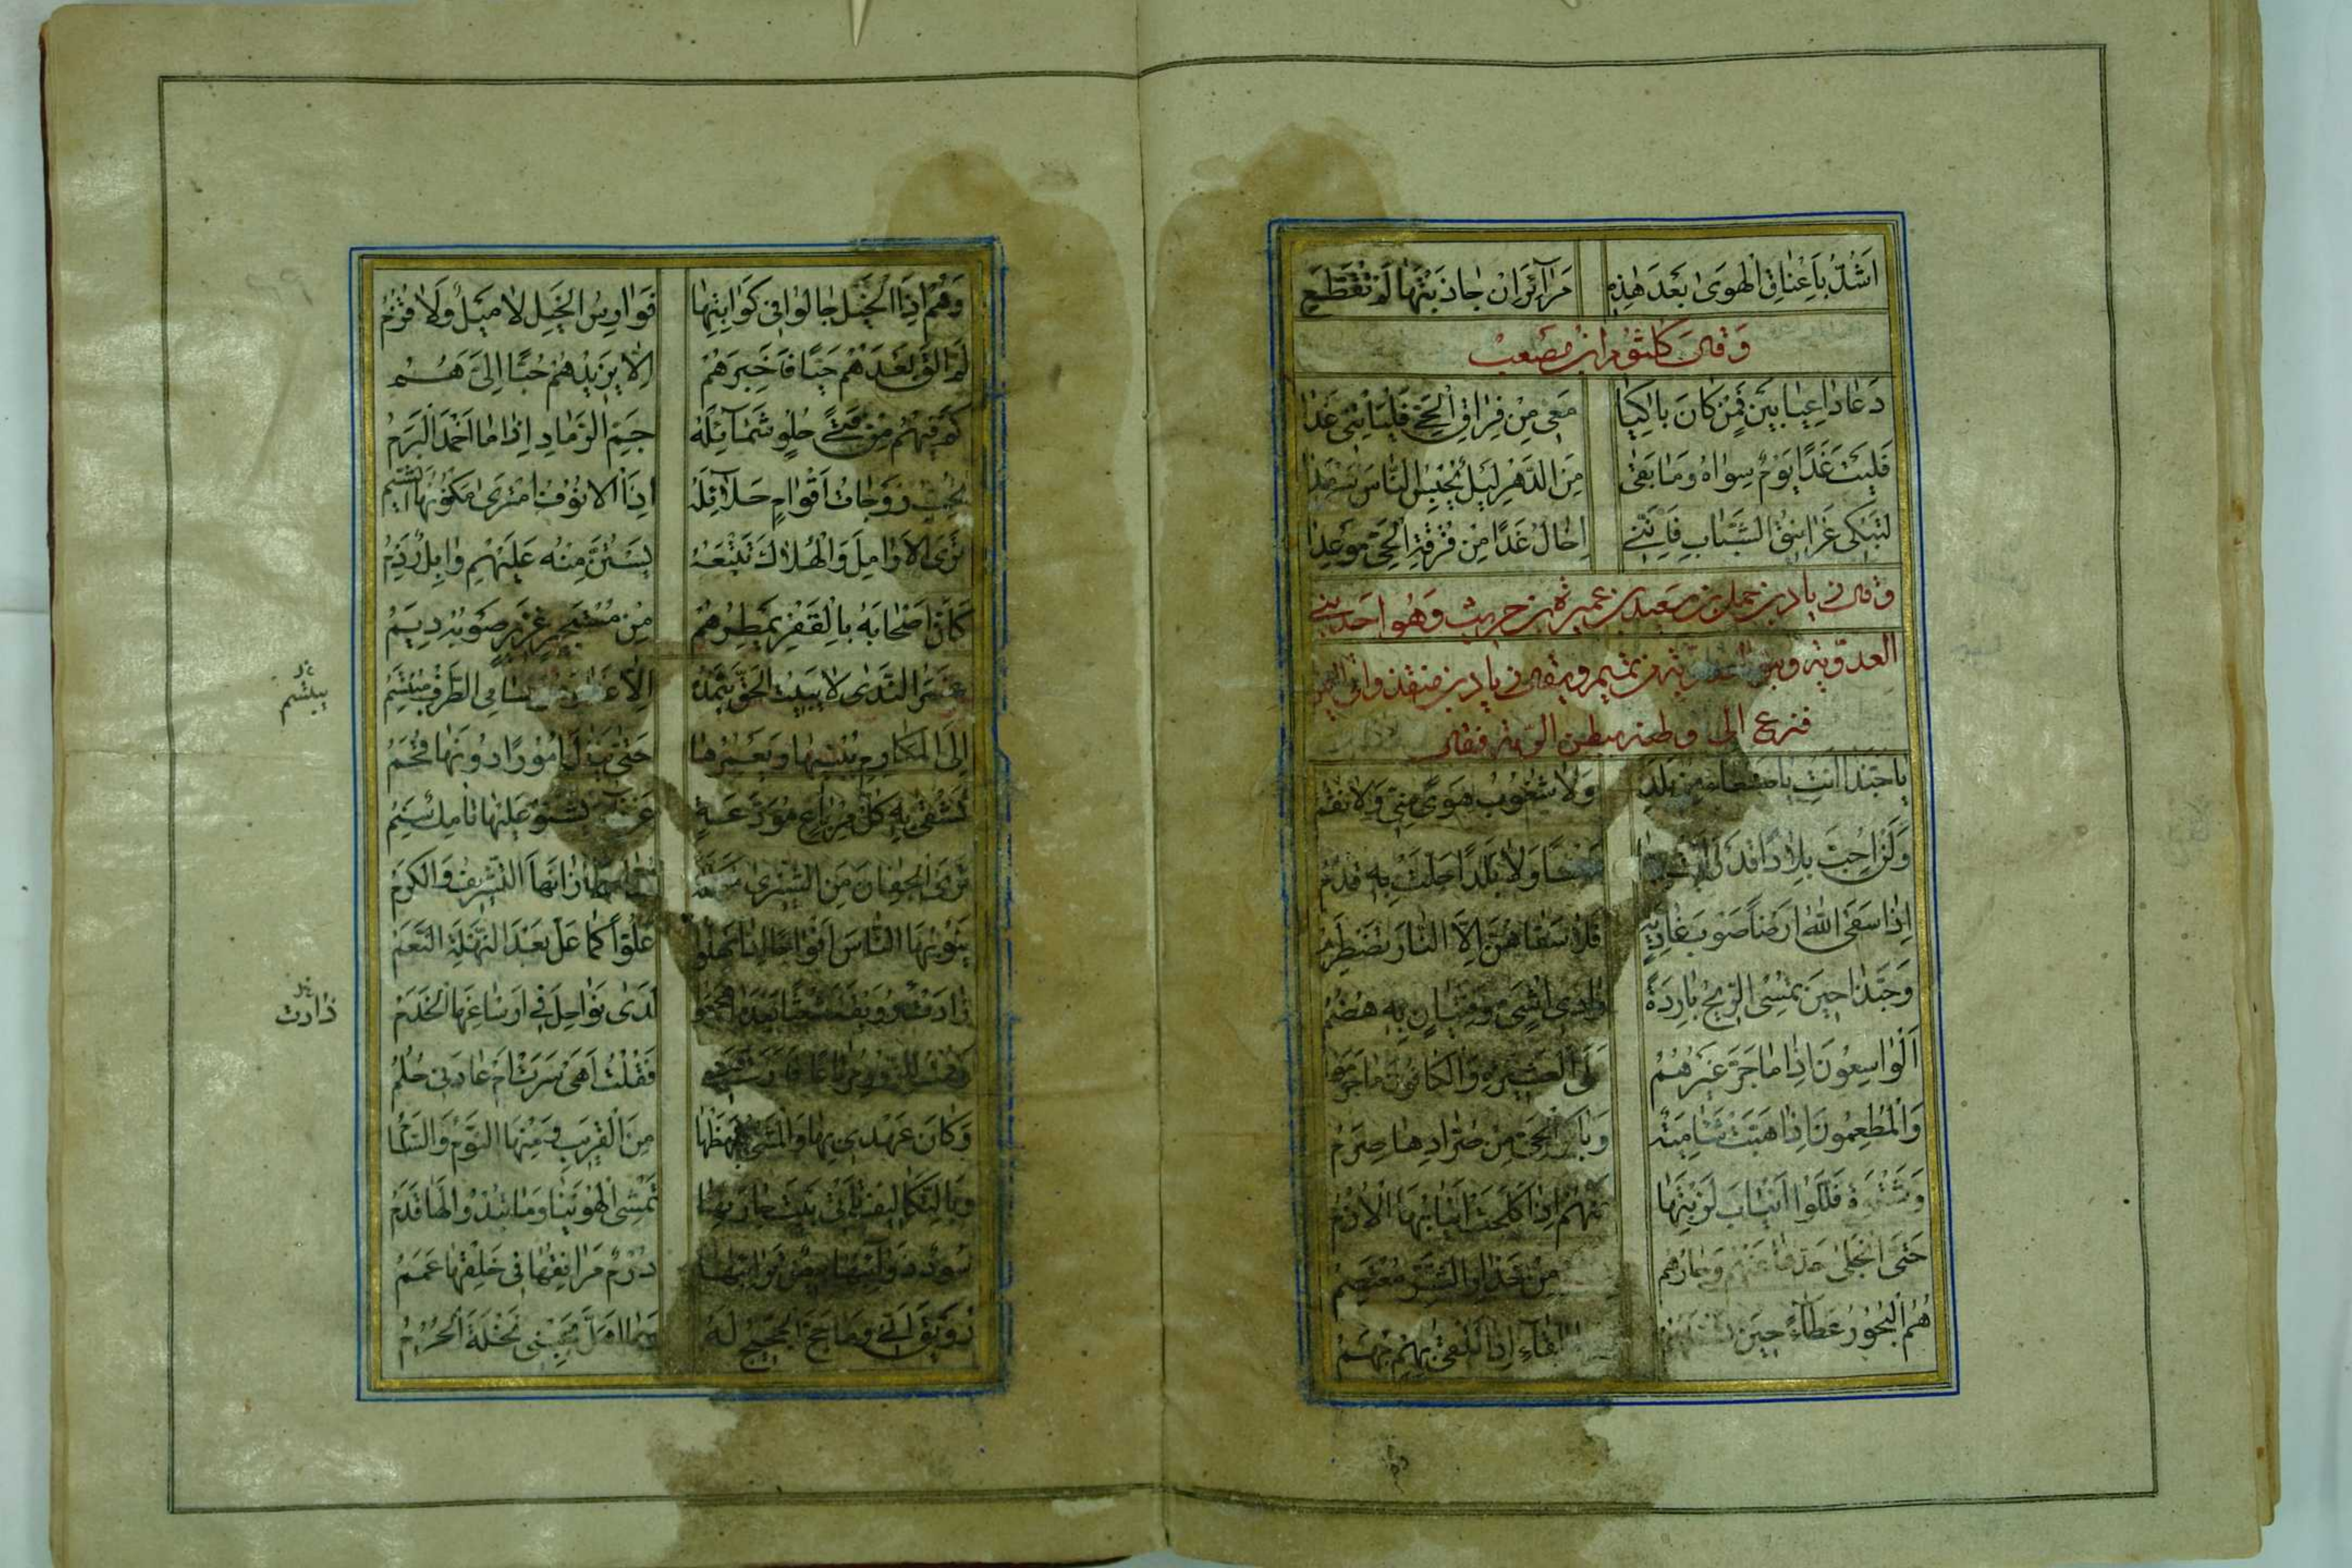 اَشُدُّ بِاَعْنَاقِ الْهَوَى بَعْدَ هٰذِهِ مَرَآئِرَ اِنْ جَاذَبْتَهَا لَمْ تَقَطَّعِ
وَقَالَ كُلْثُوم ابن مصعب
دَعَا دَاعِيَا بَيْنٍ فَمَنْ كَانَ بَاكِيًا مَعِي مِنْ فِرَاقِ الْحَيِّ فَلْيَاْتِنِي غَدَا
فَلَيْتَ غَدًا يَوْمٌ سِوَاهُ وَمَا بَقَى مِنَ الدَّهْرِ لَيْلٌ يَحْبِسُ النَّاسَ سَرْمَدَا
لِتَبْكِ غَرَانِيقُ الشَّبَابِ فَاِنَّنِي اِخَالُ غَدًا مِنْ فُرْقَةِ الْحَيِّ مَوْعِدَا
وقال زياد بن حمل بن سعيد بن عميرة بن حريث وَهُوَ احَد بني
العدوية من تميم ويقال زياد بن منقذ واتى اليمن
فنزع الى وطنه ببطن الرمة فقال
يَا حَبَّذَا اَنْتِ يَا صَنْعَاءُ مِنْ بَلَدٍ وَلَا شَعُوبُ هَوًى مِنِّي وَلَا نُقُمُ
وَلَنْ اُحِبَّ بِلَادًا قَدْ رَاَيْتُ بِهَا وَلَا بَلَدًا حَلَّتْ بِهِ قُدُمُ
اِذَا سَقَى اللهُ اَرْضًا صَوْبَ غَادِيَةٍ فَلَا سَقَاهُنَّ اِلَّا النَّارَ تَضْطَرِمُ
وَحَبَّذَا حِينَ تُمْسِي الرِّيحُ بَارِدَةً وَادِي اُشَيٍّ وَفِتْيَانٌ بِهِ هُضُمُ
اَلْوَاسِعُونَ اِذَا مَا جَرَّ غَيْرُهُمُ عَلَى الْعَشِيرَةِ وَالْكَافُونَ مَا جَرَمُوا
وَالْمُطْعِمُونَ اِذَا هَبَّتْ شَآمِيَةً وَبَاكَرَ الْحَيَّ مِنْ صُرَّادِهَا صِرَمُ
وَشَتْوَةٍ فَلَّلُوا اَنْيَابَ لَزْبَتِهَا عَنْهُمْ اِذَا كَلَحَتْ اَنْيَابُهَا الْاُزُمُ
حَتَّى انْجَلَى حَدُّهَا عَنْهُمْ وَجَارُهُمُ مِنْ حَذَارِ الشَّرِّ مُعْتَصِمُ
هُمُ الْبُحُورُ عَطَآءً حِينَ اللِّقَآءِ اِذَا تَلْقَى بِهِمْ بُهَمُ
وَهُمْ اِذَا الْخَيْلُ جَالُوا فِي كَوَاثِبِهَا فَوَارِسُ الْخَيْلِ لَا مِيلٌ وَلَا قُزُمُ
لَمْ اَلْقَ بَعْدَهُمْ حَيًّا فَاَخْبِرَهُمْ اِلَّا يَزِيدُهُمْ حُبًّا اِلَيَّ هُمُ
كَمْ فِيهُمُ مِنْ فَتًى حُلْوٍ شَمَآئِلُهُ جَمِّ الرَّمَادِ اِذَا مَا اَخْمَدَ الْبَرَمُ
تُحِبُّ زَوْجَاتُ اَقْوَامٍ حَلَآئِلَهُ اِذَا الْاُنُوفُ امْتَرَى مَكْنُونَهَا الشَّبَمُ
تَرَى الْاَرَامِلَ وَالْهُلَّاكَ تَتْبَعُهُ يَسْتَنُّ مِنْهُ عَلَيْهِمْ وَابِلٌ رَذِمُ
كَاَنَّ اَصْحَابَهُ بِالْقَفْرِ يُمْطِرُهُمْ مِنْ مُسْتَحِيرٍ غَزِيرٍ صَوْبُهُ دِيَمُ
غَمْرُ النَّدَى لَا يَبِيتُ الْحَقُّ يَثْمُدُهُ اِلَّا غَدَا وَهُوَ سَامِي الطَّرْفِ مُبْتَسِمُ
يبتسم
اِلَى الْمَكَارِمِ يَبْنِيهَا وَيَعْمُرُهَا حَتَّى يَنَالَ اُمُورًا دُونَهَا قُحَمُ
تَشْقَى بِهِ كُلُّ مِرْبَاعٍ مُوَدَّعَةٍ يَشْتُو عَلَيْهَا تَامِكٌ سَنِمُ
تَرَى الْجِفَانَ مِنَ الشِّيزَى زَانَهَا التَّشْرِيفُ وَالْكَرَمُ
يَنُوبُهَا النَّاسُ اَفْوَاجًا اِذَا نَهِلُوا عَلُّوا كَمَا عَلَّ بَعْدَ النَّهْلَةِ النَّعَمُ
لَدَى نَوَاحِلَ فِي اَرْسَاغِهَا الْخَدَمُ
زادت
فَقُلْتُ اَهْيَ سَرَتْ اَمْ عَادَنِي حُلُمُ
وَكَانَ عَهْدِي بِهَا وَالْمَشْيُ يَبْهَظُهَا مِنَ الْقَرِيبِ وَمِنْهَا النَّوْمُ وَالسَّأَمُ
وَبِالتَّكَالِيفِ تَأْتِي بَيْتَ جَارَتِهَا تَمْشِي الْهُوَيْنَا وَمَا تَبْدُو لَهَا قَدَمُ
سُودٌ ذَوَآئِبُهَا بِيضٌ تَرَائِبُهَا دُرْمٌ مَرَافِقُهَا فِي خَلْقِهَا عَمَمُ
رُوَيْقَ اِنِّي وَمَا حَجَّ الْحَجِيجُ لَهُ وَمَا اَهَلَّ بِجَنْبَيْ نَخْلَةَ الْحُرُمُ